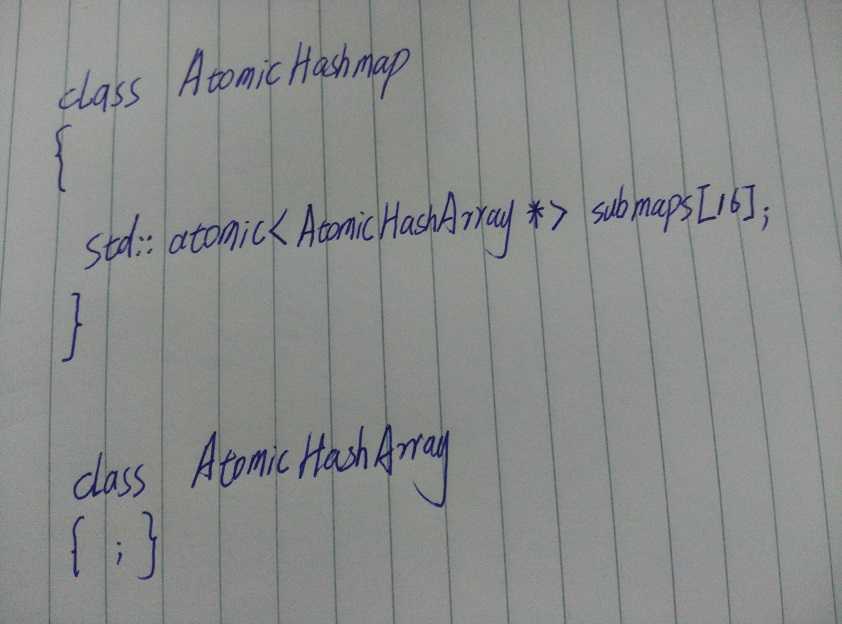 class AtomicHashmap
{
std:: atomic<AtomicHashArray *> submaps[16];
}
class AtomicHashArray
{ ; }